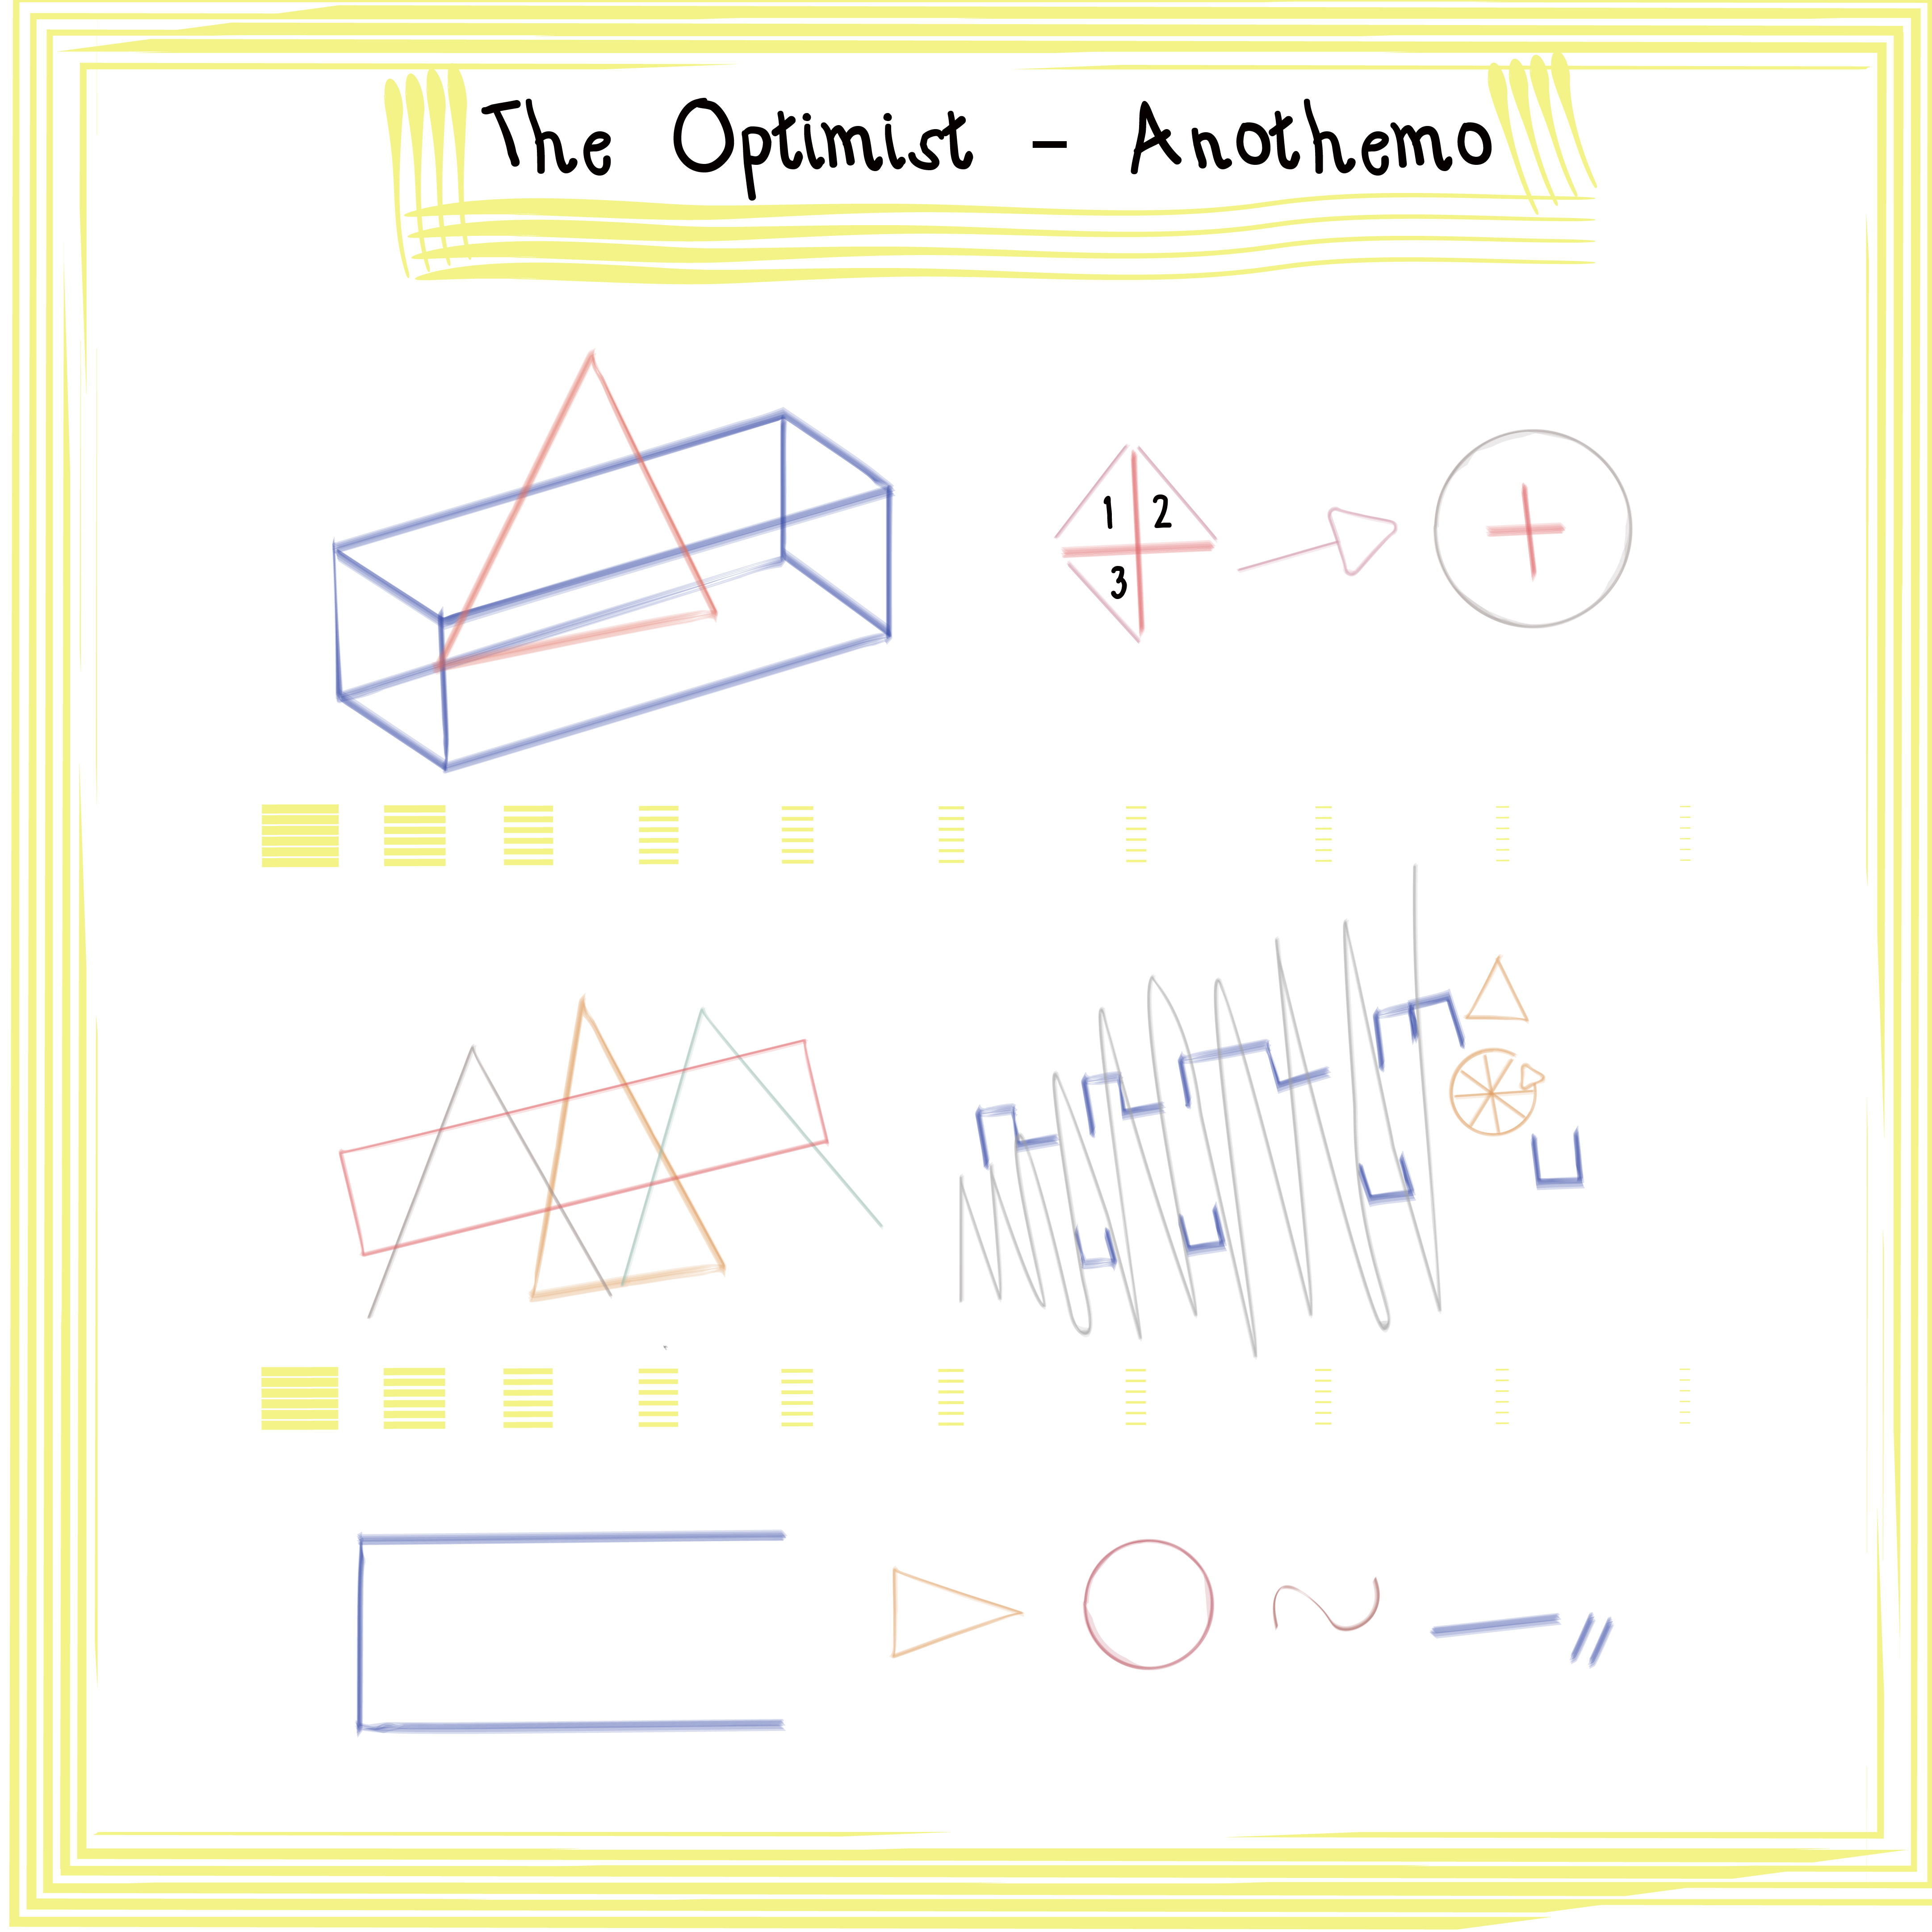 The Optimist - Anotheno
1 2
3